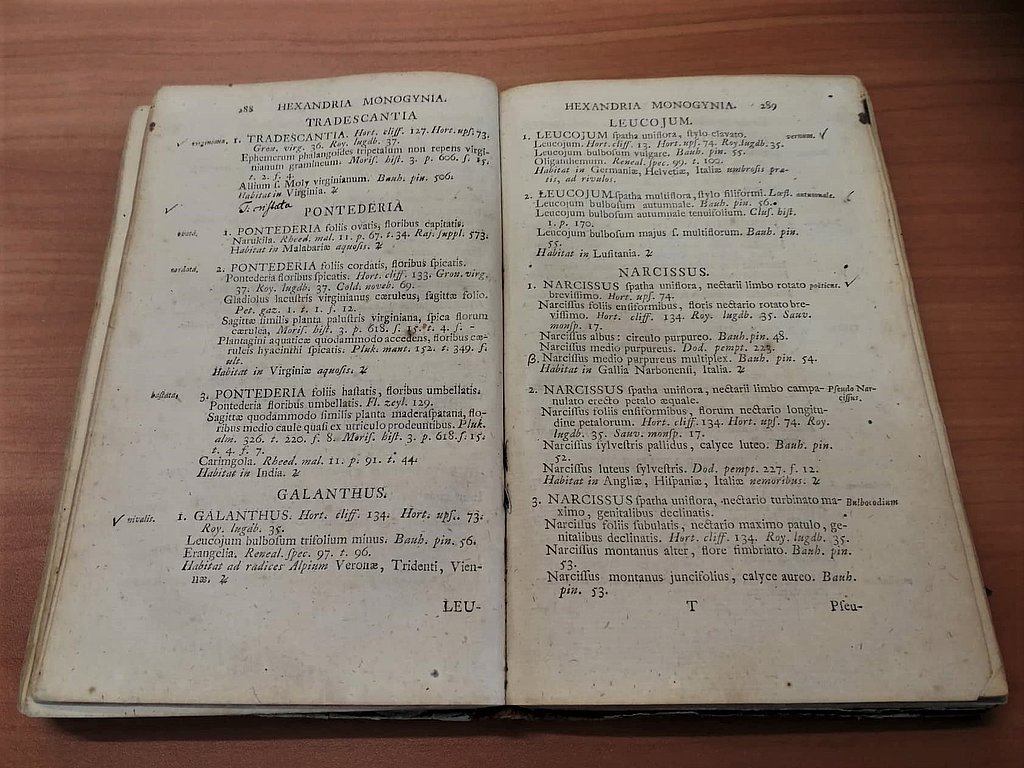 288 HEXANDRIA MONOGYNIA.
TRADESCANTIA
virginiana. 1. TRADESCANTIA. Hort. cliff. 127. Hort. upſ. 73.
Gron. virg. 36. Roy. lugdb. 37.
Ephemerum phalangoides tripetalum non repens virgi-
nianum gramineum. Moriſ. hiſt. 3. p. 606. ſ. 15.
t. 2. f. 4.
Allium ſ. Moly virginianum. Bauh. pin. 506.
Habitat in Virginia. ♃
PONTEDERIA
ovata. 1. PONTEDERIA foliis ovatis, floribus capitatis.
Narukila. Rheed. mal. 11. p. 67. t. 34. Raj. ſuppl. 573.
Habitat in Malabariæ aquoſis. ♃
cordata. 2. PONTEDERIA foliis cordatis, floribus ſpicatis.
Pontederia floribus ſpicatis. Hort. cliff. 133. Gron. virg.
37. Roy. lugdb. 37. Cold. noveb. 69.
Gladiolus lacuſtris virginianus cæruleus, ſagittæ folio.
Pet. gaz. 1. t. 1. f. 12.
Sagittæ ſimilis planta paluſtris virginiana, ſpica florum
cærulea, Moriſ. hiſt. 3. p. 618. ſ. 15. t. 4. f. -
Plantagini aquaticæ quodammodo accedens, floribus cæ-
ruleis hyacinthi ſpicatis. Pluk. mant. 152. t. 349. f.
ult.
Habitat in Virginiæ aquoſis. ♃
haſtata. 3. PONTEDERIA foliis haſtatis, floribus umbellatis.
Pontederia floribus umbellatis. Fl. zeyl. 129.
Sagittæ quodammodo ſimilis planta maderaſpatana, flo-
ribus medio caule quaſi ex utriculo prodeuntibus. Pluk.
alm. 326. t. 220. f. 8. Moriſ. hiſt. 3. p. 618. ſ. 15.
t. 4. f. 7.
Carimgola. Rheed. mal. 11. p. 91. t. 44.
Habitat in India. ♃
GALANTHUS.
nivalis. 1. GALANTHUS. Hort. cliff. 134. Hort. upſ. 73.
Roy. lugdb. 35.
Leucojum bulboſum trifolium minus. Bauh. pin. 56.
Erangelia. Reneal. ſpec. 97. t. 96.
Habitat ad radices Alpium Veronæ, Tridenti, Vien-
næ. ♃
LEU-
HEXANDRIA MONOGYNIA. 289
LEUCOJUM.
1. LEUCOJUM ſpatha uniflora, ſtylo clavato. vernum.
Leucojum. Hort. cliff. 13. Hort. upſ. 74. Roy. lugdb. 35.
Leucojum bulboſum vulgare. Bauh. pin. 55.
Oliganthemum. Reneal. ſpec. 99. t. 100.
Habitat in Germaniæ, Helvetiæ, Italiæ umbroſis pra-
tis, ad rivulos.
2. LEUCOJUM ſpatha multiflora, ſtylo filiformi. Lœfl. autumnale.
Leucojum bulboſum autumnale. Bauh. pin. 56.
Leucojum bulboſum autumnale tenuifolium. Cluſ. hiſt.
1. p. 170.
Leucojum bulboſum majus ſ. multiflorum. Bauh. pin.
55.
Habitat in Luſitania. ♃
NARCISSUS.
1. NARCISSUS ſpatha uniflora, nectarii limbo rotato poëticus.
breviſſimo. Hort. upſ. 74.
Narciſſus foliis enſiformibus, floris nectario rotato bre-
viſſimo. Hort. cliff. 134. Roy. lugdb. 35. Sauv.
monſp. 17.
Narciſſus albus: circulo purpureo. Bauh. pin. 48.
Narciſſus medio purpureus. Dod. pempt. 223.
β. Narciſſus medio purpureus multiplex. Bauh. pin. 54.
Habitat in Gallia Narbonenſi, Italia. ♃
2. NARCISSUS ſpatha uniflora, nectarii limbo campa- Pſeudo Nar-
nulato erecto petalo æquale. ciſſus.
Narciſſus foliis enſiformibus, florum nectario longitu-
dine petalorum. Hort. cliff. 134. Hort. upſ. 74. Roy.
lugdb. 35. Sauv. monſp. 17.
Narciſſus ſylveſtris pallidus, calyce luteo. Bauh. pin.
52.
Narciſſus luteus ſylveſtris. Dod. pempt. 227. f. 12.
Habitat in Angliæ, Hiſpaniæ, Italiæ nemoribus. ♃
3. NARCISSUS ſpatha uniflora, nectario turbinato ma- Bulbocodium
ximo, genitalibus declinatis.
Narciſſus foliis ſubulatis, nectario maximo patulo, ge-
nitalibus declinatis. Hort. cliff. 134. Roy. lugdb. 35.
Narciſſus montanus alter, flore fimbriato. Bauh. pin.
53.
Narciſſus montanus juncifolius, calyce aureo. Bauh.
pin. 53.
T Pſeu-